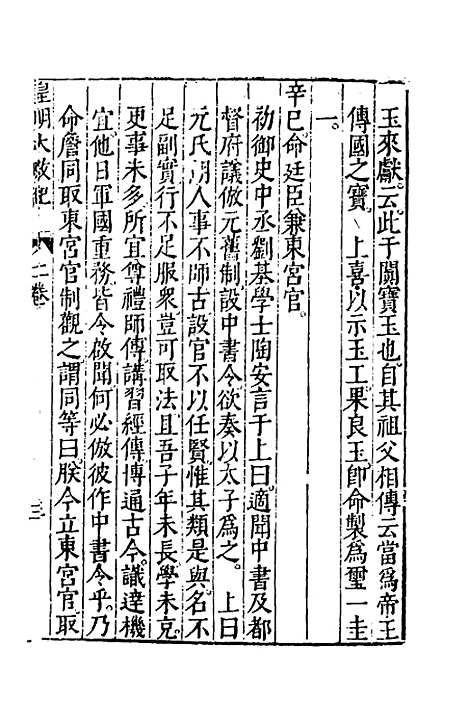 玉來獻。云此于闐寶玉也。自其祖父相傳云當爲帝王
傳國之寶。上喜以示玉工果良玉。卽命製爲璽一圭
一。
辛巳命廷臣兼東宮官。
初御史中丞劉基學士陶安言于上曰。適聞中書及都
督府議倣元舊制設中書令欲奏以太子爲之。上曰
元氏胡人事不師古設官不以任賢惟其類是與名不
足副實行不足服衆豈可取法且吾子年未長學未充
更事未多所宜尊禮師傅講習經傳博通古今。識達機
宜他日軍國重務皆令啟聞何必倣彼作中書令乎。乃
命詹同取東宮官制觀之謂同等曰。朕今立東宮官取
皇明大政紀 二卷 三